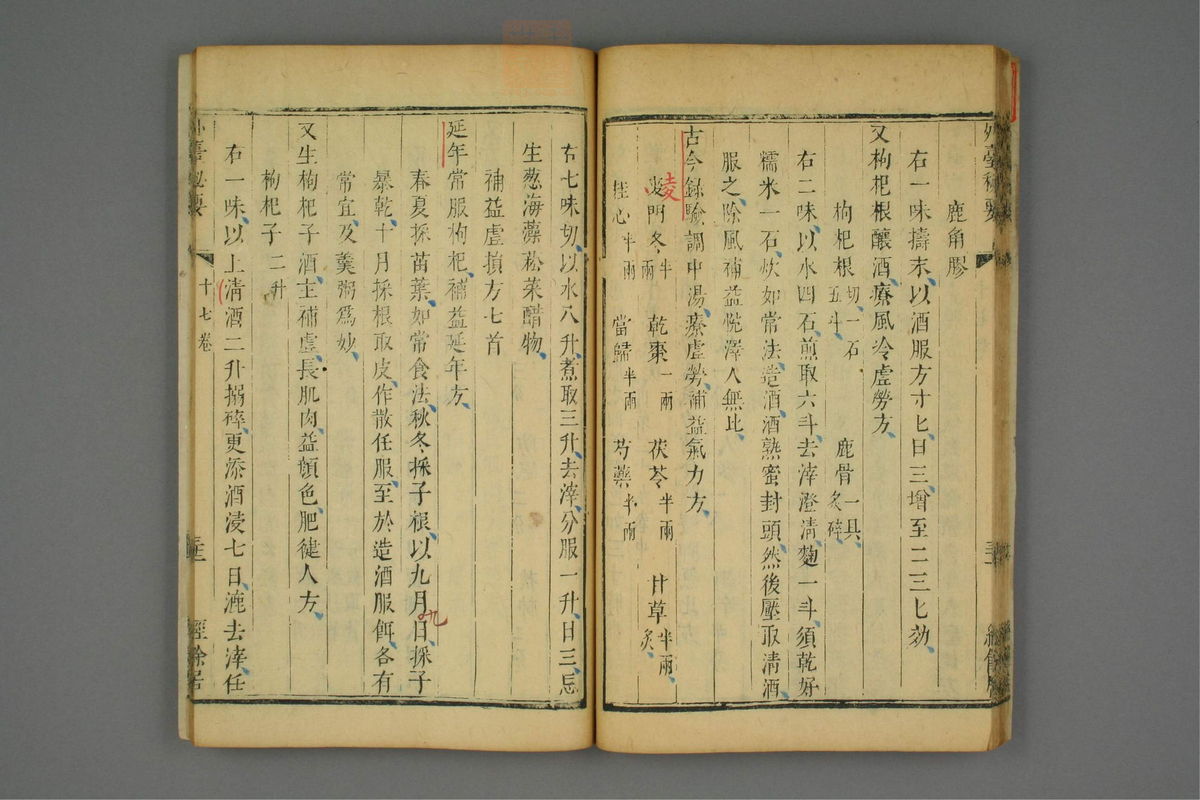 鹿角膠
右一味擣末以酒服方寸匕日三增至二三匕効
又枸杞根釀酒療風冷虛勞方
枸杞根切一石五斗 鹿骨一具炙碎
右二味以水四石煎取六斗去滓澄清麴一斗須乾好
糯米一石炊如常法造酒酒熟蜜封頭然後壓取清酒
服之除風補益悅澤人無比
古今録驗調中湯療虛勞補益氣力方
麥門冬半兩 乾棗一兩 茯苓半兩 甘草半兩炙
凌
桂心半兩 當歸半兩 芍藥半兩
右七味切以水八升煮取三升去滓分服一升日三忌
生葱海藻菘菜醋物
補益虛損方七首
延年常服枸杞補益延年方
春夏採苗葉如常食法秋冬採子根以九月日採子
九
暴乾十月採根取皮作散任服至於造酒服餌各有
常宜及羹粥爲妙
又生枸杞子酒主補虛長肌肉益顏色肥健人方
枸杞子二升
右一味以上清酒二升搦碎更添酒浸七日漉去滓任
外臺秘要 十七卷 三十二 經餘居